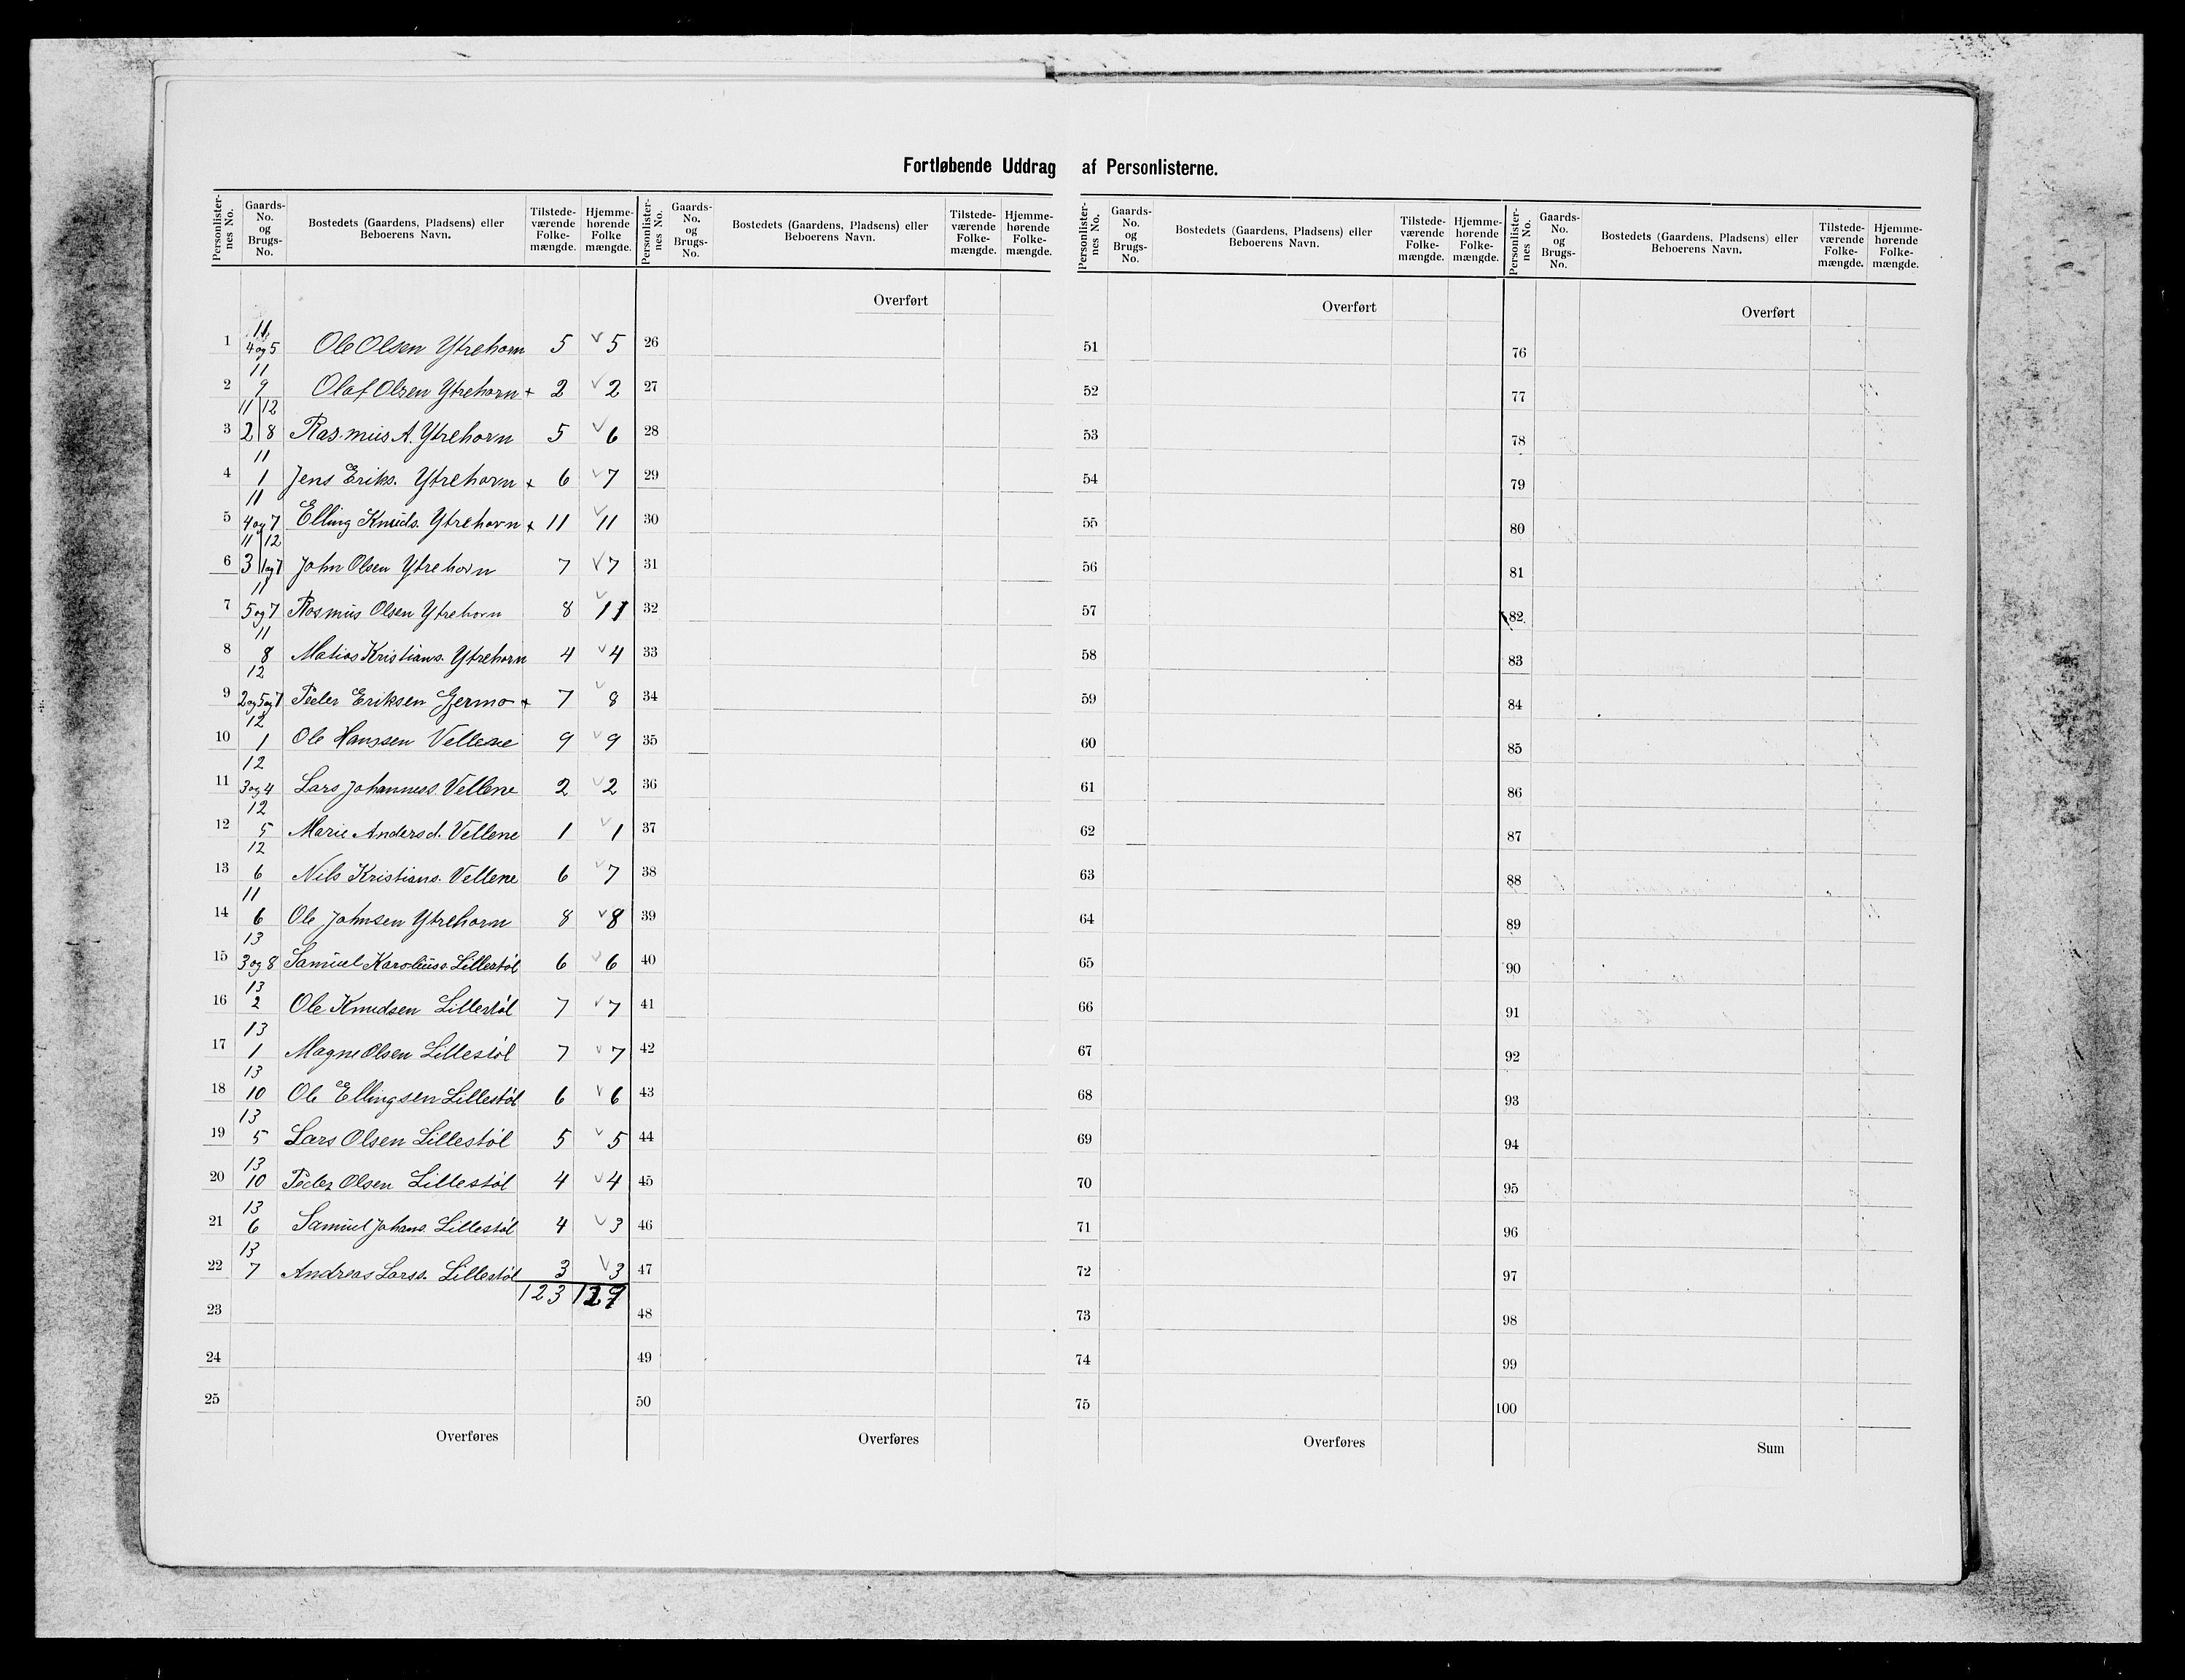 Fortløbende Uddrag af Personlisterne.
Personlister-nes No. | Gaards-No. og Brugs-No. | Bostedets (Gaardens, Pladsens) eller Beboerens Navn. | Tilstede-værende Folke-mængde. | Hjemme-hørende Folke mængde.
1 | 11 4 og 5 | Ole Olsen Ytrehorn | 5 | v 5
2 | 11 9 | Olaf Olsen Ytrehorn + | 2 | v 2
3 | 11 2 | 12 8 | Rasmus A. Ytrehorn | 5 | v 6
4 | 11 1 | Jens Eriks. Ytrehorn + | 6 | v 7
5 | 11 4 og 7 | Elling Knuds. Ytrehorn + | 11 | v 11
6 | 11 3 | 12 1 og 7 | John Olsen Ytrehorn | 7 | v 7
7 | 11 5 og 7 | Rasmus Olsen Ytrehorn | 8 | v 11
8 | 11 8 | Matias Kristians. Ytrehorn | 4 | v 4
9 | 12 2 og 5 og 7 | Peder Eriksen Gjermo + | 7 | v 8
10 | 12 1 | Ole Hanssen Vellene | 9 | v 9
11 | 12 3 og 4 | Lars Johanness. Vellene | 2 | v 2
12 | 12 5 | Marie Andersd. Vellene | 1 | v 1
13 | 12 6 | Nils Kristians. Vellene | 6 | v 7
14 | 11 6 | Ole Johnsen Ytrehorn | 8 | v 8
15 | 13 3 og 8 | Samuel Karoliuss. Lillestøl | 6 | v 6
16 | 13 2 | Ole Knudsen Lillestøl | 7 | v 7
17 | 13 1 | Magne Olsen Lillestøl | 7 | v 7
18 | 13 10 | Ole Ellingsen Lillestøl | 6 | v 6
19 | 13 5 | Lars Olsen Lillestøl | 5 | v 5
20 | 13 10 | Peder Olsen Lillestøl | 4 | v 4
21 | 13 6 | Samuel Johans. Lillestøl | 4 | v 3
22 | 13 7 | Andreas Larss. Lillestøl | 3 | v 3
123
23
24
25
Overføres
Personlister-nes No. | Gaards-No. og Brugs-No. | Bostedets (Gaardens, Pladsens) eller Beboerens Navn. | Tilstede-værende Folke-mængde. | Hjemme-hørende Folke-mængde.
Overført
26
27
28
29
30
31
32
33
34
35
36
37
38
39
40
41
42
43
44
45
46
47
48
49
50
Overføres
Personlister-nes No. | Gaards-No. og Brugs-No. | Bostedets (Gaardens, Pladsens) eller Beboerens Navn. | Tilstede-værende Folke-mængde. | Hjemme-hørende Folke-mængde.
Overført
51
52
53
54
55
56
57
58
59
60
61
62
63
64
65
66
67
68
69
70
71
72
73
74
75
Overføres
Personlister-nes No. | Gaards-No. og Brugs-No. | Bostedets (Gaardens, Pladsens) eller Beboerens Navn. | Tilstede-værende Folke-mængde. | Hjemme-hørende Folke-mængde.
Overført
76
77
78
79
80
81
82
83
84
85
86
87
88
89
90
91
92
93
94
95
96
97
98
99
100
Sum